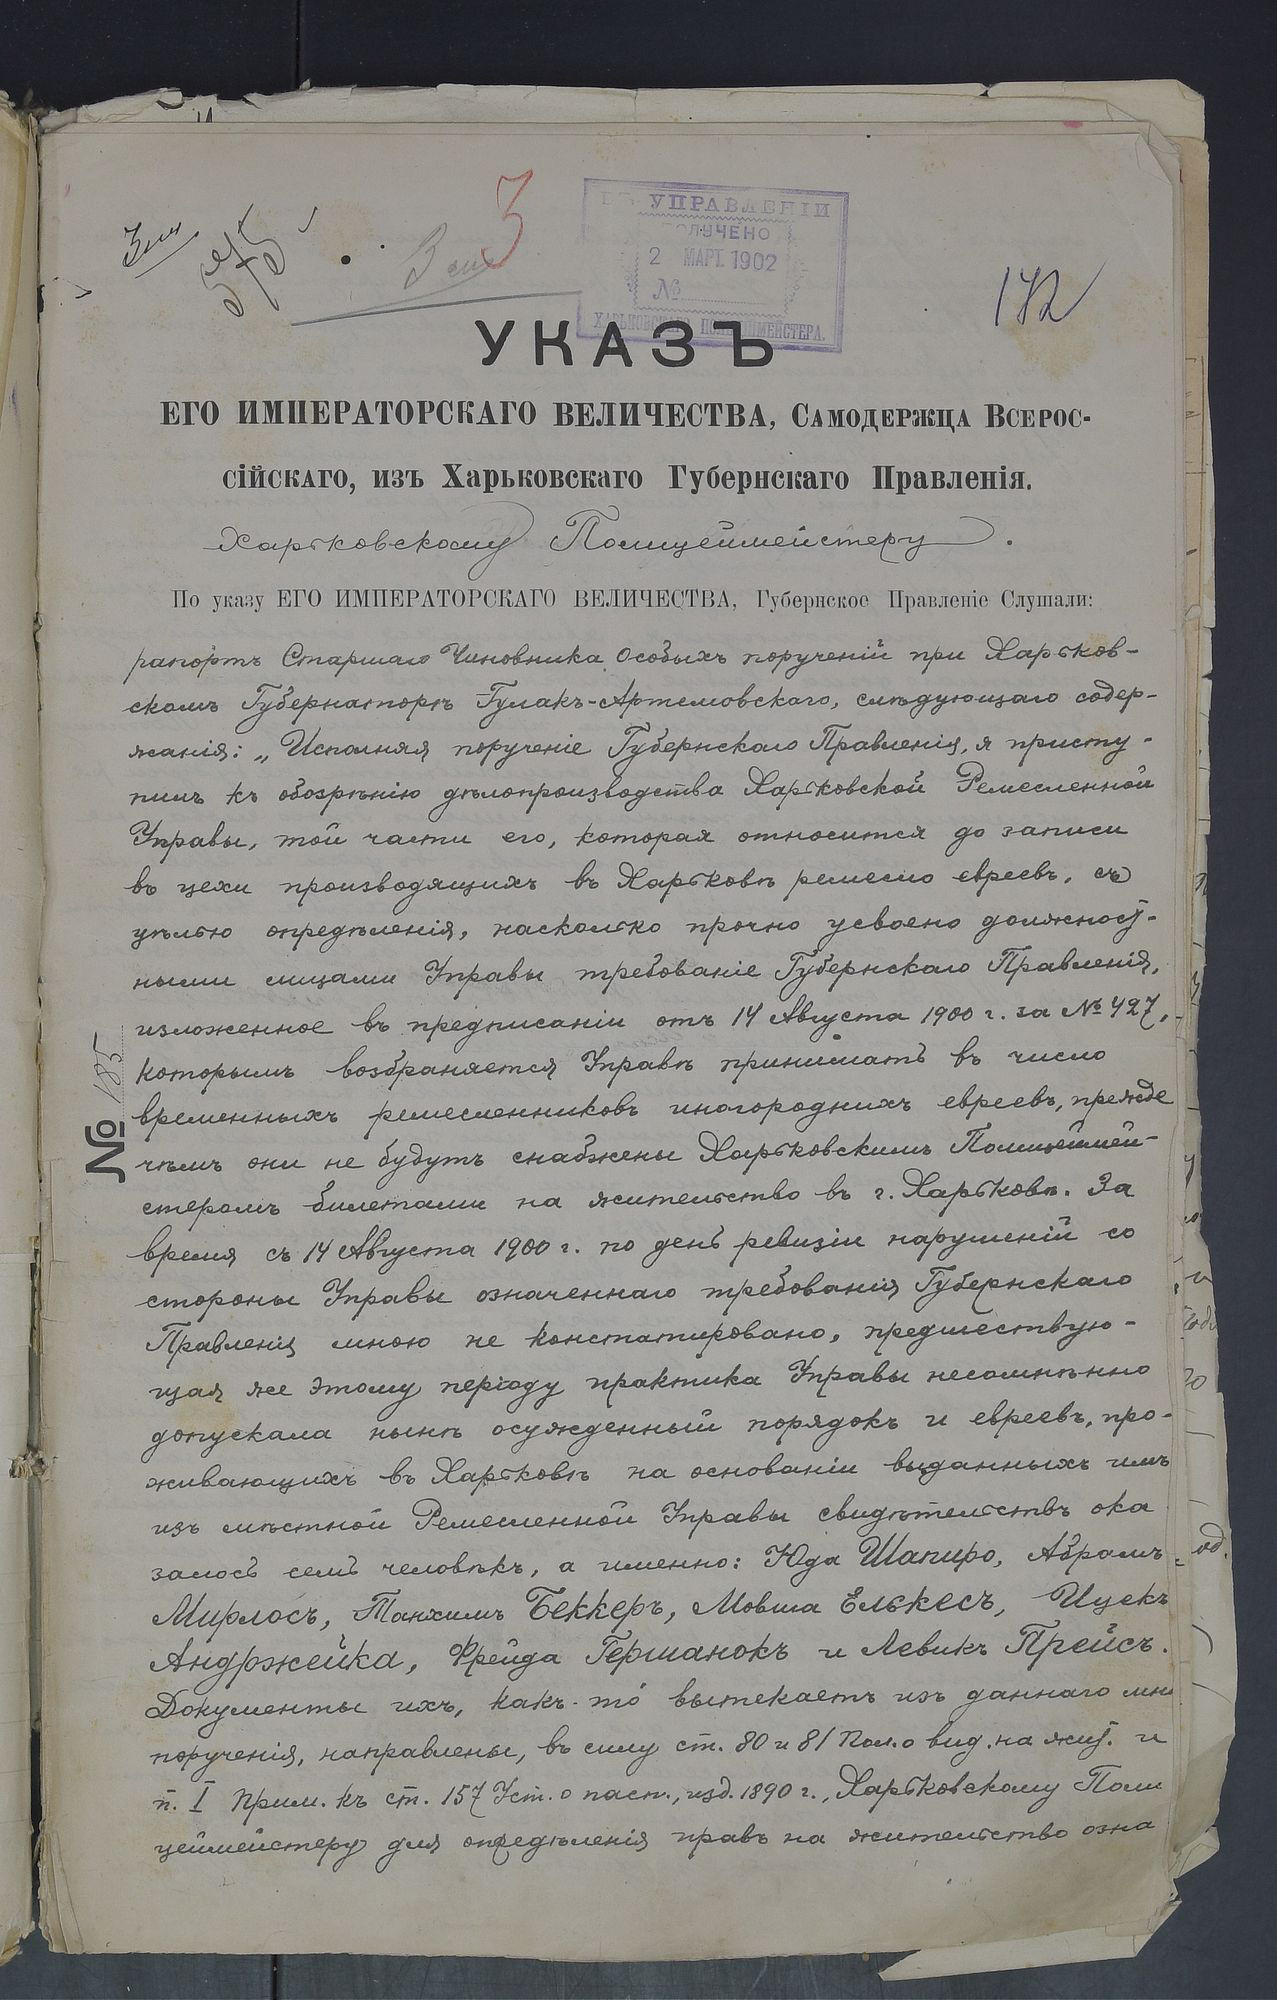 3
172
ВЪ УПРАВЛЕНІИ
ПОЛУЧЕНО
2 МАРТ. 1902
№
ХАРЬКОВСКАГО ПОЛИЦІЙМЕЙСТЕРА.
УКАЗЪ
ЕГО ИМПЕРАТОРСКАГО ВЕЛИЧЕСТВА, Самодержца Всерос-
сійскаго, изъ Харьковскаго Губернскаго Правленія.
Харьковскому Полицеймейстеру.
По указу ЕГО ИМПЕРАТОРСКАГО ВЕЛИЧЕСТВА, Губернское Правленіе Слушали:
рапортъ Старшаго Чиновника Особыхъ порученій при Харьков-
скомъ Губернаторѣ Гулакъ-Артемовскаго, слѣдующаго содер-
жанія: „Исполняя порученіе Губернскаго Правленія, я присту-
пилъ къ обозрѣнію дѣлопроизводства Харьковской Ремесленной
Управы, той части его, которая относится до записи
въ цехи производящихъ въ Харьковѣ ремесло евреевъ, съ
цѣлью опредѣленія, насколько прочно усвоено должност-
ными лицами Управы требованіе Губернскаго Правленія,
изложенное въ предписаніи отъ 14 Августа 1900 г. за № 427,
которымъ возбраняется Управѣ принимать въ число
временныхъ ремесленниковъ иногороднихъ евреевъ, прежде
чѣмъ они не будутъ снабжены Харьковскимъ Полицеймей-
стеромъ билетами на жительство въ г. Харьковѣ. За
время съ 14 Августа 1900 г. по день ревизіи нарушеній со
стороны Управы означеннаго требованія Губернскаго
Правленія мною не констатировано, предшествую-
щая же этому періоду практика Управы несомнѣнно
допускала нынѣ осужденный порядокъ и евреевъ, про-
живающихъ въ Харьковѣ на основаніи выданныхъ имъ
изъ мѣстной Ремесленной Управы свидѣтельствъ ока
залось семь человѣкъ, а именно: Юда Шапиро, Абрамъ
Мирлосъ, Танхимъ Беккеръ, Мовша Елькесъ, Ицекъ
Андржейка, Фрейда Гершанокъ и Левикъ Прейсъ.
Документы ихъ, какъ то вытекаетъ изъ даннаго мнѣ
порученія, направлены, въ силу ст. 80 и 81 Пол. о вид. на жит. и
п. I Прим. къ ст. 157 Уст. о пасп., изд. 1890 г., Харьковскому Поли
цеймейстеру для опредѣленія правъ на жительство озна
№ 185